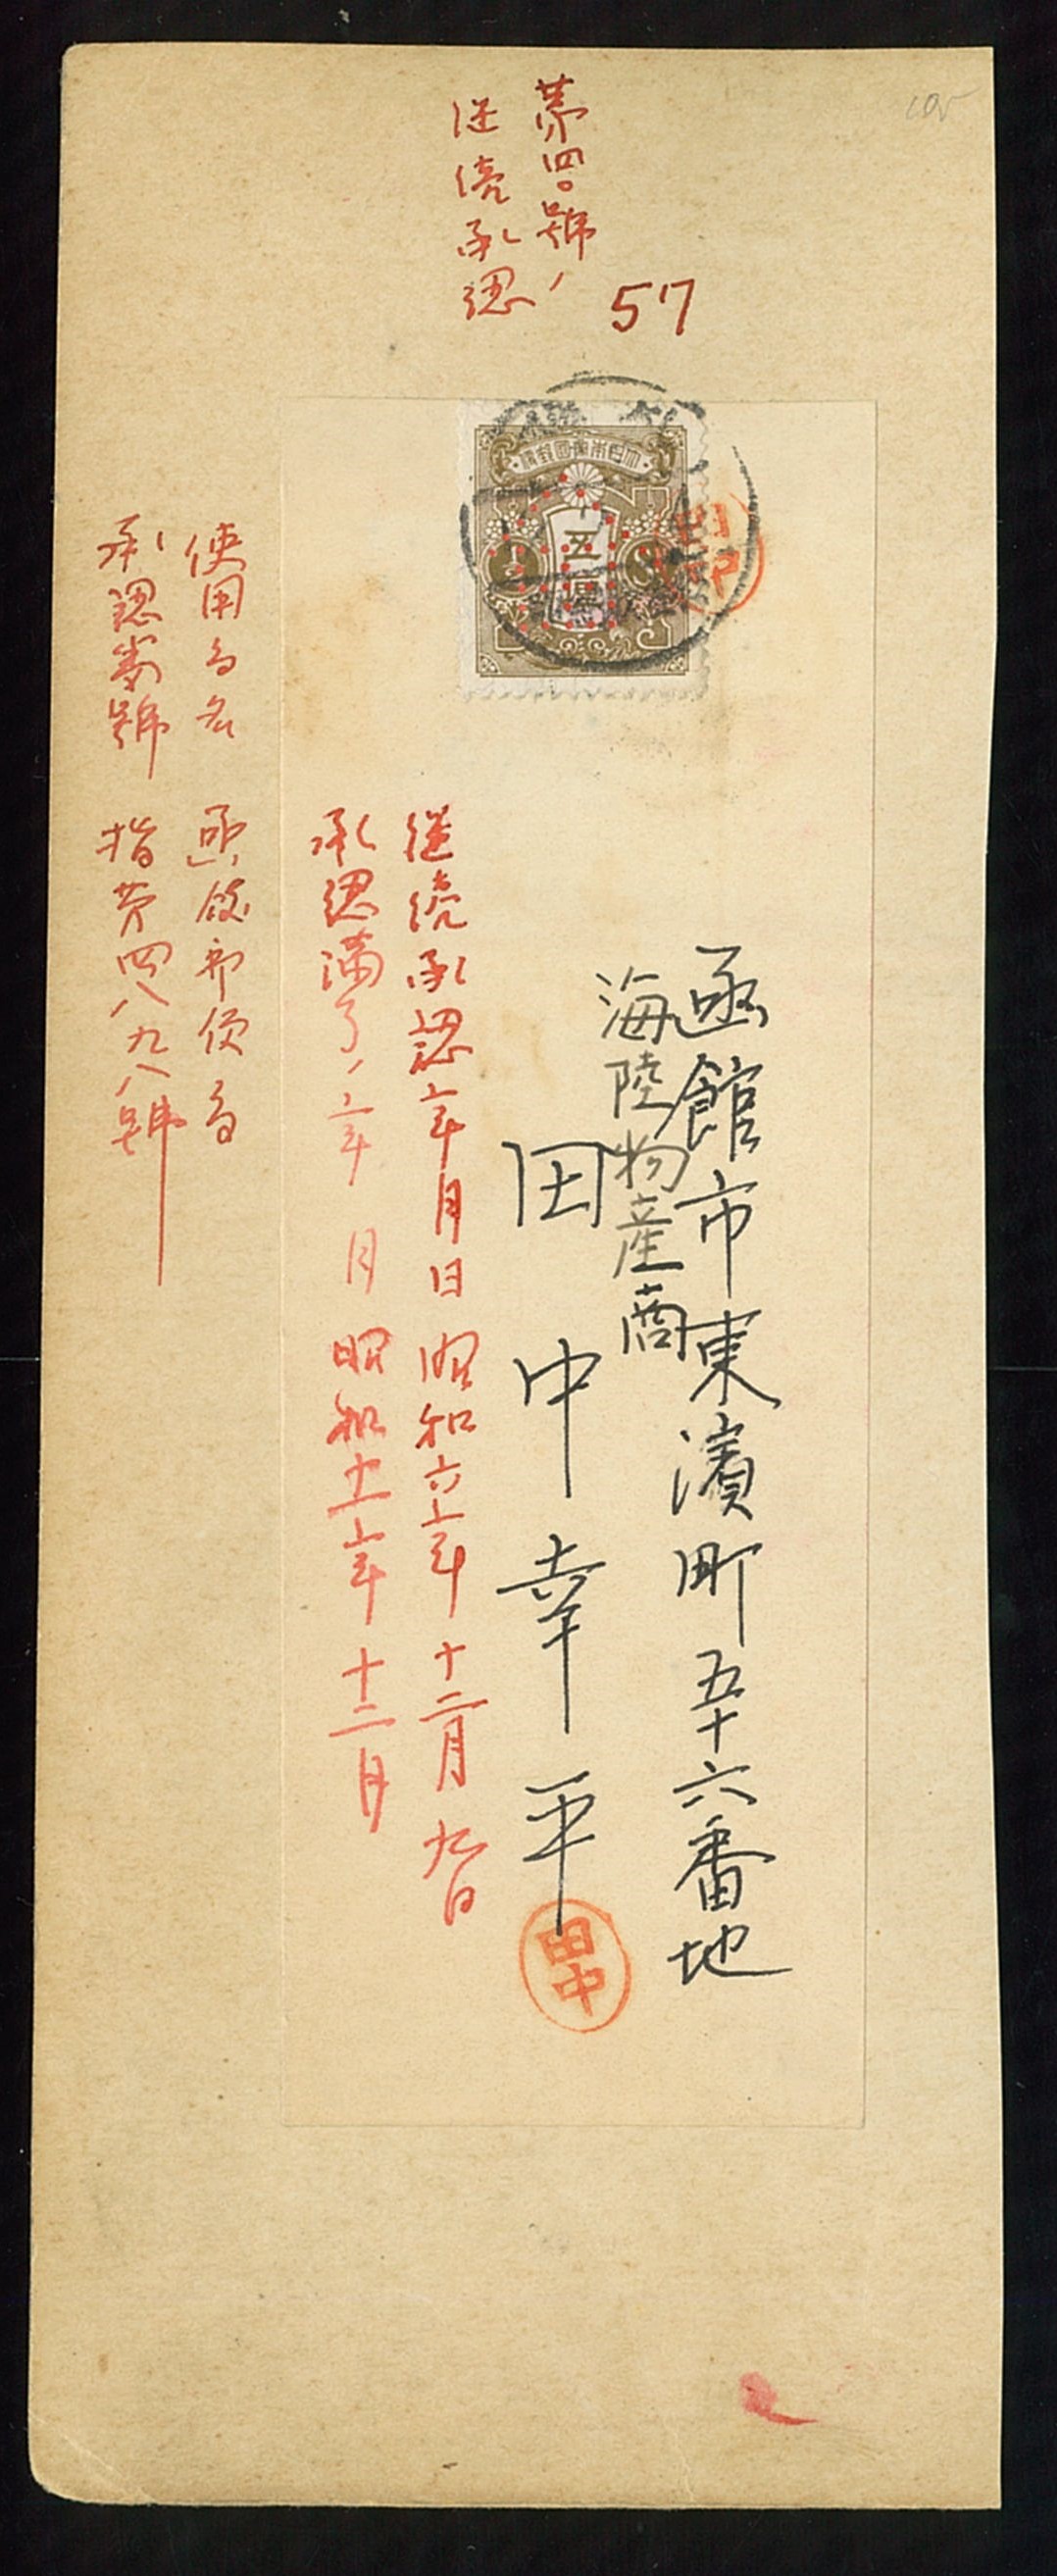 第四〇號ノ
継続承認
57
大日本帝國郵便
五厘
函館市東濱町五十六番地
海陸物産商
田中幸平
田中
継続承認ノ年月日 昭和六年十二月九日
承認満了ノ年月 昭和十一年十二月
使用局名 函館郵便局
承認番號 指第四八九八號